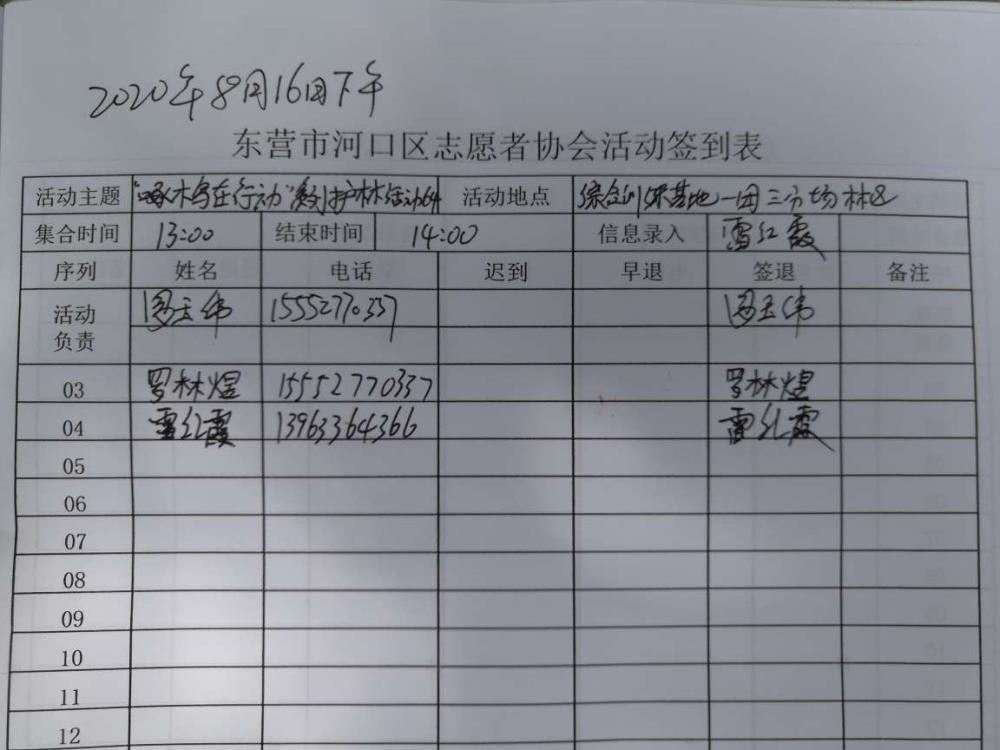 2020年8月16日下午
东营市河口区志愿者协会活动签到表
活动主题 "啄木鸟在行动" 护林活动64 活动地点 综合训保基地一团三分场林区
集合时间 13:00 结束时间 14:00 信息录入 雷红霞
序列 姓名 电话 迟到 早退 签退 备注
活动负责 15552770337
03 罗林煜 15552770337 罗林煜
04 雷红霞 13963364366 雷红霞
05
06
07
08
09
10
11
12